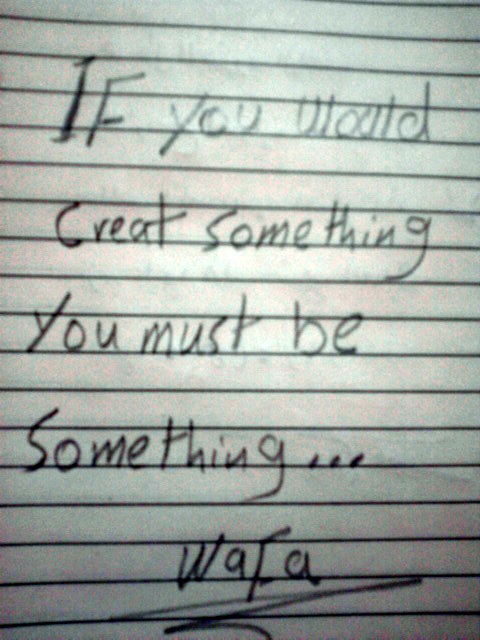 IF you would
Creat something
You must be
Something...
Wafa